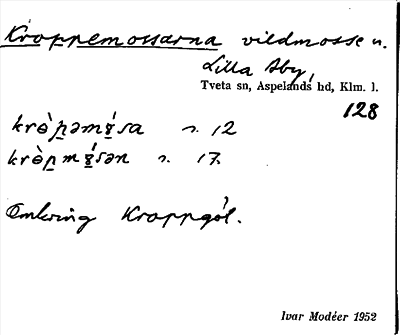 Kroppemossarna vildmosse n.
Lilla Aby,
Tveta sn, Aspelands hd, Klm. l.
128
krò̀p̠əmɤ́sa n. 12
krò̀p̠mɤ́sən n. 17.
Omkring Kroppgöl.
Ivar Modéer 1952